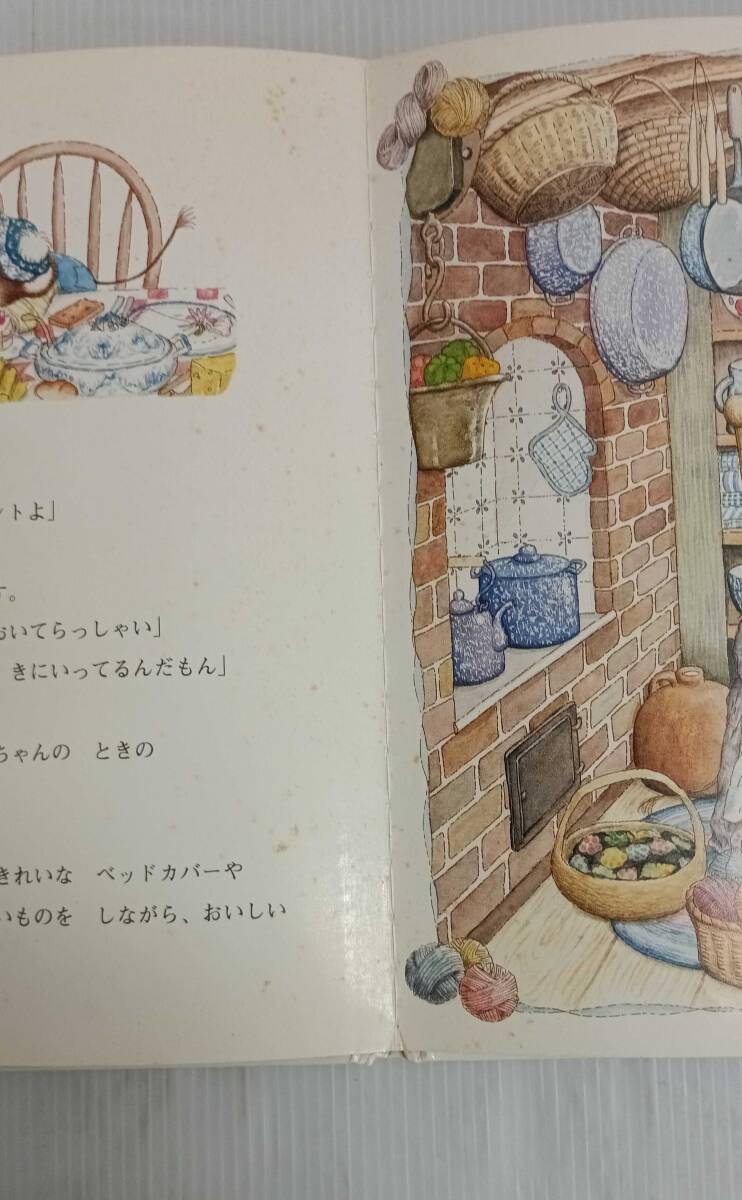 ットよ」
す。
おいてらっしゃい」
きにいってるんだもん」
ちゃんの　ときの
きれいな　ベッドカバーや
いものを　しながら、おいしい